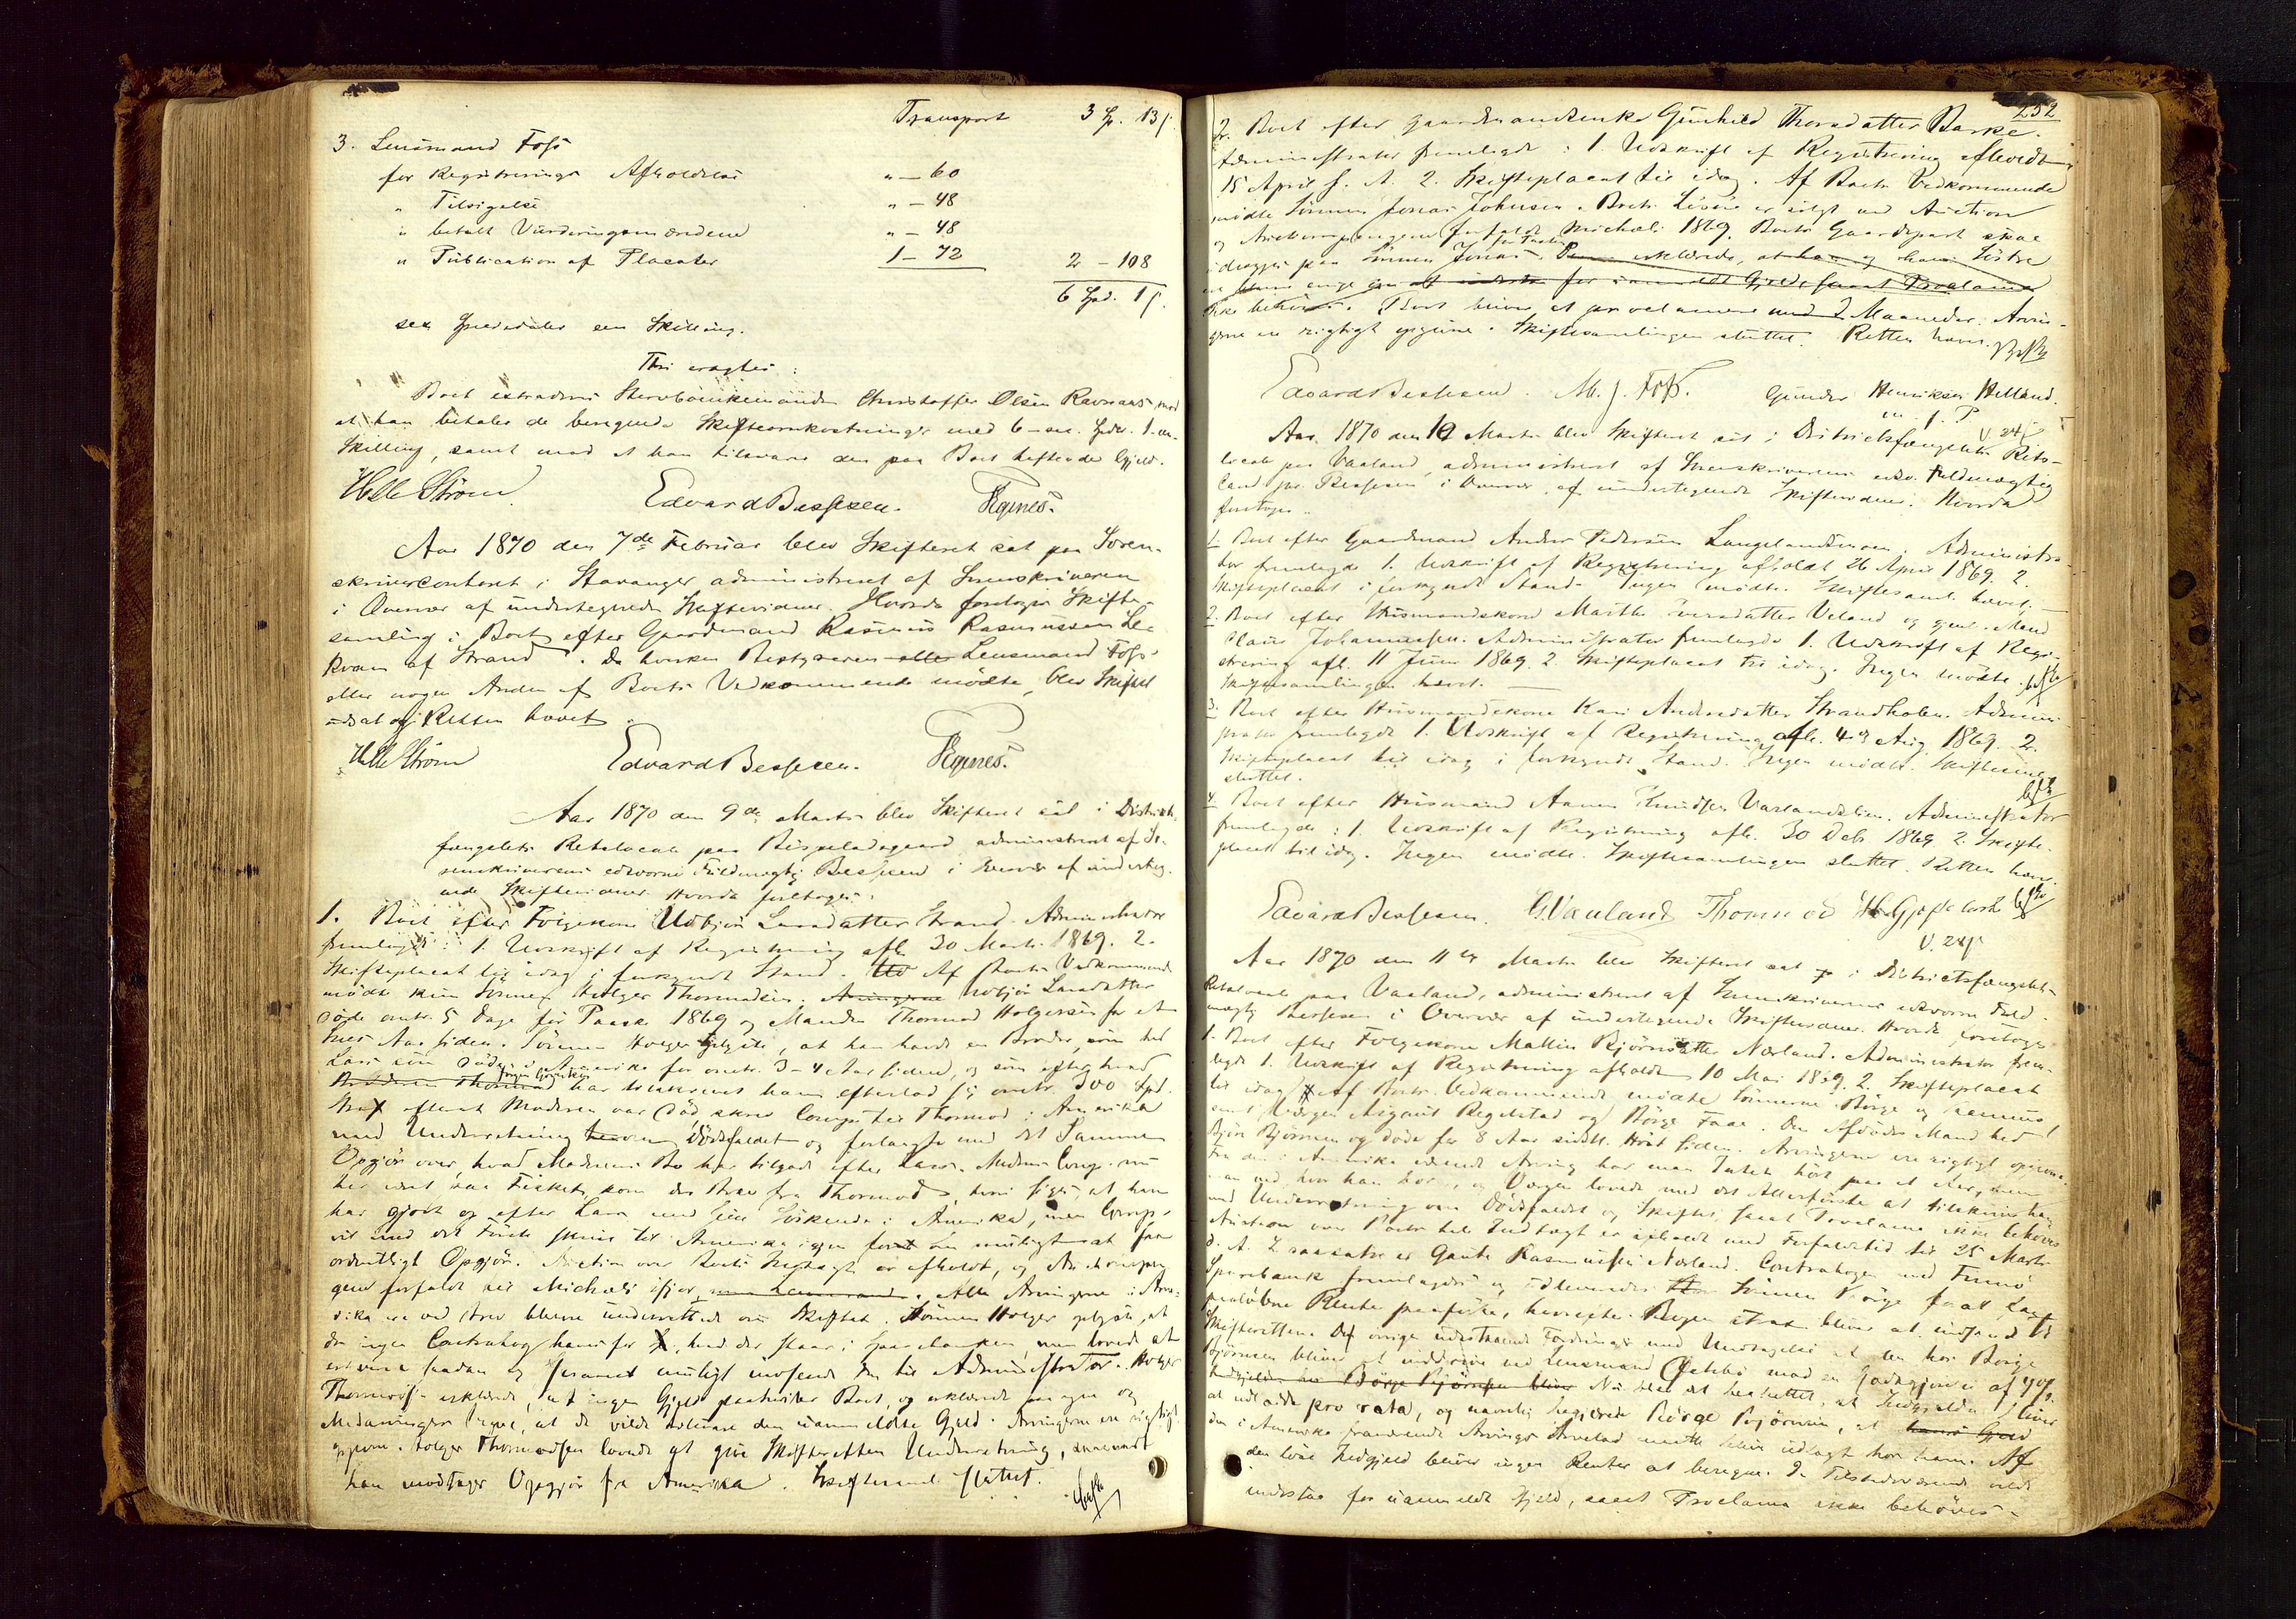 Transport 3 Sp. 13 s.
3. Lensmand Foss
for Registrerings Afholdelse " — 60
" Tilsigelse " — 48
" betalt Vurderingsmændene " — 48
" Publication af Placater 1 — 72 2 — 108
6 Spd. 1 s.
sex Speciedaler een Skilling.
Thi eragtes:
Boet extraderes Stervboenkemanden Christoffer Olsen Ravnaas, mod
at han betaler de beregnede Skifteomkostninger med 6 — sex Spdlr. 1 — en
Skilling, samt mod at han tilsvarer den paa Boet heftende Gjeld.
Helle Strøm Edvard Bessesen. Egenes.
Aar 1870 den 7de Februar blev Skifteret sat paa Soren-
skrivercontoret i Stavanger administreret af Sorenskriveren
i Overvær af undertegnede Skiftevidner. Hvorda foretoges Skifte-
samling i Boet efter Gaardmand Rasmus Rasmussen
Kvam af Strand. Da hverken Bestyreren eller Lensmand Foss
eller nogen Anden af Boets Vedkommende mødte, blev Skiftet
udsat og Retten hævet.
Helle Strøm Edvard Bessesen. Egenes.
Aar 1870 den 9de Marts blev Skifteret sat i Districts-
fængslets Retslocale paa Bispeladegaard administreret af So-
renskriverens edsvorne Fuldmægtig Bessesen i Overvær af underteg-
nede Skiftevidner. Hvorda foretoges:
1. Boet efter Folgekone Udbjør Larsdatter Strand. Administrator
fremlagde: 1. Udskrift af Registrering afh. 30 Marts 1869. 2.
Skifteplacat til idag i forkyndt Stand. Af Boets Vedkommende
mødte kun Sønnen Holger Thormodsen. Arvingerne Udbjør Larsdatter
døde omtr. 5 Dage før Paaske 1869 og Manden Thormod Holgersen for et
Aar siden. Sønnen Holger oplyste, at han havde en Broder, som hed
Lars som døde i Amerika for omtr. 3-4 Aar siden, og som efter hvad
Broderen Thormod har skrevet ham efterlod sig omtr. 300 Spd.
Strax efterat Moderen var død, skrev Comp. til Thormod i Amerika
med Underretning herom Dødsfaldet og forlangte med det Samme
Opgjør over, hvad Moderens Bo har tilgode efter Lars. Medens Comp. nu
har været paa Fisket, kom der Brev fra Thormod, hvori siges, at han
har gjort op efter Lars med sine Søskende i Amerika, men Comp.
vil med det Første skrive til Amerika igjen for om muligt at faa
ordentligt Opgjør. Auction over Boets Indtægt er afholdt, og Auctionspen-
gene forfaldt til Michaeli ifjor. Alle Arvingerne i Ame-
rika ere ved Brev blevne underrettede om Skiftet. Sønnen Holger oplyste, at
der ingen Contrabog haves for, hvad der staar i Sparebanken, men lovede at
erhverve saadan og snarest muligt indsende den til Administrator. Holger
Thormodsen erklærede, at ingen Gjeld paahviler Boet, og erklærede paa egne og
Medarvingers Vegne, at de vilde tilsvare den uanmeldte Gjeld. Arvingerne ere rigtigt
opgivne. Holger Thormodsen lovede at give Skifteretten Underretning, saasnart
han modtager Opgjør fra Amerika. Skiftesaml. sluttet.
252
2. Boet efter Gaardmandsenke Gunhild Thorsdatter Barke.
Administrator fremlagde: 1. Udskrift af Registrering afholdt
15 April f. A. 2. Skifteplacat til idag. Af Boets Vedkommende
mødte Sønnen Jonas Johnsen. Boets Løsøre er solgt ved Auction
og Auctionspengene forfaldt Michaeli 1869. Boets Gaardpart skal
udlægges paa Sønnen Jonas for Taxten. erklærede, at han og hans Søstre
for uanmeldt Gjeld, samt Proclama
ikke behøves. Boet bliver at proclamere med 2 Maaneder. Arvin-
gerne ere rigtigt opgivne. Skiftesamlingen sluttet. Retten hævet.
Edvard Bessesen. M. J. Foss. Gunder Henriksen Helland.
m. f. P.
V. 24 s.
Aar 1870 den 10 Marts blev Skifteret sat i Districtsfængslets Rets-
locale paa Vaaland, administreret af Sorenskriverens edsv. Fuldmægtig
Cand. jur. Bessesen i Overvær af undertegnede Skiftevidner. Hvorda
foretoges.
1. Boet efter Gaardmand Anders Pedersen Langelandsmoen. Administra-
tor fremlagde 1. Udskrift af Registrering afholdt 26 April 1869. 2.
Skifteplacat i forkyndt Stand. Ingen mødte. Skiftesaml. hævet.
2. Boet efter Husmandskone Marthe Iversdatter Veland og gjenl. Mand
Claus Johannessen. Administrator fremlagde 1. Udskrift af Regi-
strering afh. 11 Juni 1869. 2. Skifteplacat til idag. Ingen mødte.
Skiftesamlingen hævet.
3. Boet efter Husmandskone Kari Andersdatter Strandholen. Admini-
strator fremlagde 1. Udskrift af Registrering afh. 4de Aug. 1869. 2.
Skifteplacat til idag i forkyndt Stand. Ingen mødte. Skiftesaml.
sluttet.
4. Boet efter Husmand Aamund Knudsen Varlandslien. Administrator
fremlagde: 1. Udskrift af Registrering afh. 30 Debr 1869. 2. Skifte-
placat til idag. Ingen mødte. Skiftesamlingen sluttet. Retten hævet.
Edvard Bessesen. G. Vauland Thormod
V. 24 s.
Aar 1870 den 11te Marts blev Skifteret sat i Districtsfængslets
Retslocale paa Vaaland, administreret af Sorenskriverens edsvorne Fuld-
mægtig Bessesen i Overvær af undertegnede Skiftevidner. Hvorda foretoges
1. Boet efter Folgekone Mallin Bjørnsdatter Nærland. Administrator frem-
lagde 1. Udskrift af Registrering afholdt 10 Mai 1869. 2. Skifteplacat
til idag. Af Boets Vedkommende mødte Sønnerne Børge og Rasmus,
samt Værgen Asgaut Regelstad og Børge Faae. Den Afdødes Mand hed
Bjørn Bjørnsen og døde for 8 Aar sidstl. Høst siden. Arvingerne ere rigtigt opgivne.
Fra den i Amerika værende Arving har man Intet hørt paa et Aar, men
man ved, hvor han bor, og Værgen lovede med det Allerførste at tilskrive ham
med Underretning om Dødsfaldet og Skiftet, samt Proclama ikke behøves.
Auction over Boets hele Indtægt er afholdt med Forfaldstid til 25 Marts
d. A. Incassator er Gaute Rasmussen Nærland. Contrabogen med Finnø
Sparebank fremlagdes og udleveredes Sønnen Børge for at lade
paaløbne Renter paaføre, hvorefter Bogen strax bliver at indsende til
Skifteretten. De øvrige udestaaende Fordringer med Undtagelse af den hos Børge
Bjørnsen bliver at inddrive ved Lensmand mod en Godtgjørelse af 4%.
Indgjelden hos Børge Bjørnsen bliver Nu blev det besluttet, at Indgjelden bliver
at udlodde pro rata, og navnlig begjærede Børge Bjørnsen, at hans Gjeld
den i Amerika fraværende Arvings Arvelod maatte blive udlagt hos ham. Af
den løse Indgjeld bliver ingen Renter at beregne. De Tilstedeværende vilde
indestaa for uanmeldt Gjeld, samt Proclama ikke behøves.